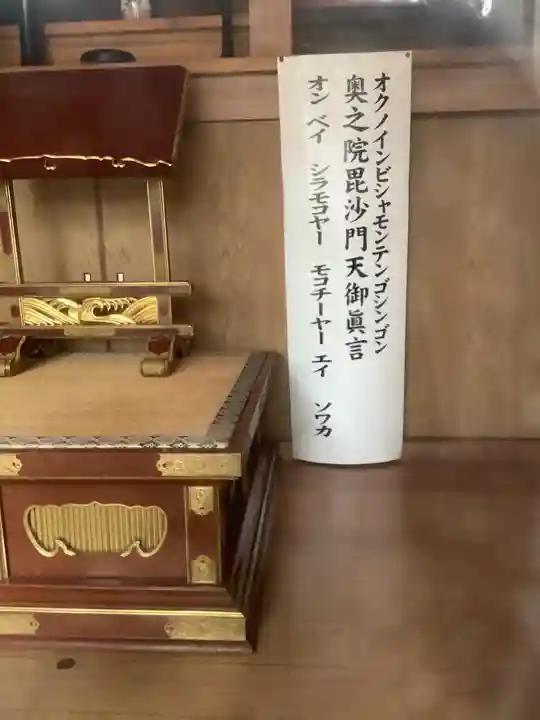 オクノインビシャモンテンゴシンゴン
奥之院毘沙門天御眞言
オン ベイ シラモコヤー モコチーヤー エイ ソワカ